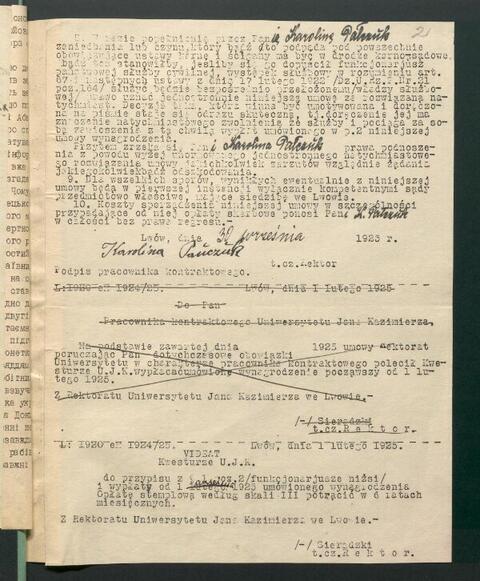 8. W razie popełnienia przez Pani Karolina Pałczuk 2
zaniedbania lub czynu, który bądź to podpada pod powszechnie
obowiązujące ustawy karne i ścigany ma być w drodze karnosądowej,
bądź też stanowiłby, jeśliby się go dopuścił funkcjonarjusz
państwowej służby cywilnej, występek służbowy w rozumieniu art.
67. i następnych ustawy z dnia 17 lutego 1922 /Dz.U.Rz.P. Nr. 21
poz. 164/ służyć będzie bezpośrednio przełożonemu/władzy służbo-
wej/ prawo uznać jednostronnie niniejszą umowę za rozwiązaną na-
tychmiast. Decyzja ta, która winna być umotywowana i doręczo-
na na piśmie staje się odrazu skuteczną, tj. doręczenie jej ma
znaczenie natychmiastowego zwolnienia ze służby i pociąga za so-
bą zawieszenie z tą chwilą wypłat umówionego w p. 2 niniejszej
umowy wynagrodzenia.
Przytem zrzeka się Pani Karolina Pałczuk prawa podnosze-
nia z powodu wyżej unormowanego jednostronnego natychmiastowe-
go rozwiązania umowy jakichkolwiek zarzutów względnie żądania
jakiegokolwiekbądź odszkodowania.
9. Dla wszelkich sporów, wynikłych ewentualnie z niniejszej
umowy będą w pierwszej instancji wyłącznie kompetentnymi sądy
przedmiotowo właściwe, mające siedzibę we Lwowie.
10. Koszty sporządzenia niniejszej umowy w szczególności
przypadające od niej opłaty skarbowe ponosi Pani K. Pałczuk
w całości bez prawa regresu.-
Lwów, dnia 30 września 1925 r.
Karolina Pałczuk
t.cz. Rektor
Podpis pracownika kontraktowego.
L: 1920 ex 1924/25. Lwów, dnia 1 lutego 1925
Do Pan
Pracownika kontraktowego Uniwersytetu Jana Kazimierza,
Na podstawie zawartej dnia 1925 umowy rektorat
poruczając Pan dotychczasowe obowiązki
Uniwersytetu w charakterze pracownika kontraktowego polecił Kwe-
sturze U.J.K. wypłacać umówione wynagrodzenie począwszy od 1 lu-
tego 1925.
Z Rektoratu Uniwersytetu Jana Kazimierza we Lwowie.
/-/ Sieradzki
t.cz. R e k t o r.
L: 1920 ex 1924/25. Lwów, dnia 1 lutego 1925.
VIDEAT
Kwestura U.J.K.
do przypisu z 2/funkcjonarjusze niżsi/
i wypłaty od 1 1925 umówionego wynagrodzenia
Opłatę stemplową według skali III potrącić w 6 ratach
miesięcznych.
Z Rektoratu Uniwersytetu Jana Kazimierza we Lwowie.-
/-/ Sieradzki
t.cz. R e k t o r.